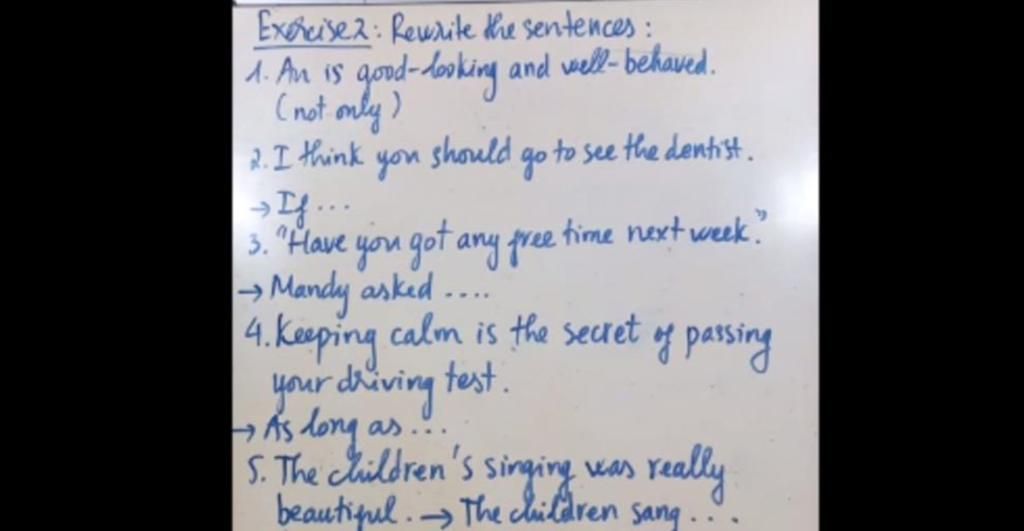 Exercise 2: Rewrite the sentences:
1. An is good-looking and well-behaved.
(not only)
2. I think you should go to see the dentist.
→ If...
3. "Have you got any free time next week."
→ Mandy asked ....
4. Keeping calm is the secret of passing
your driving test.
→ As long as ...
5. The children's singing was really
beautiful. → The children sang ...